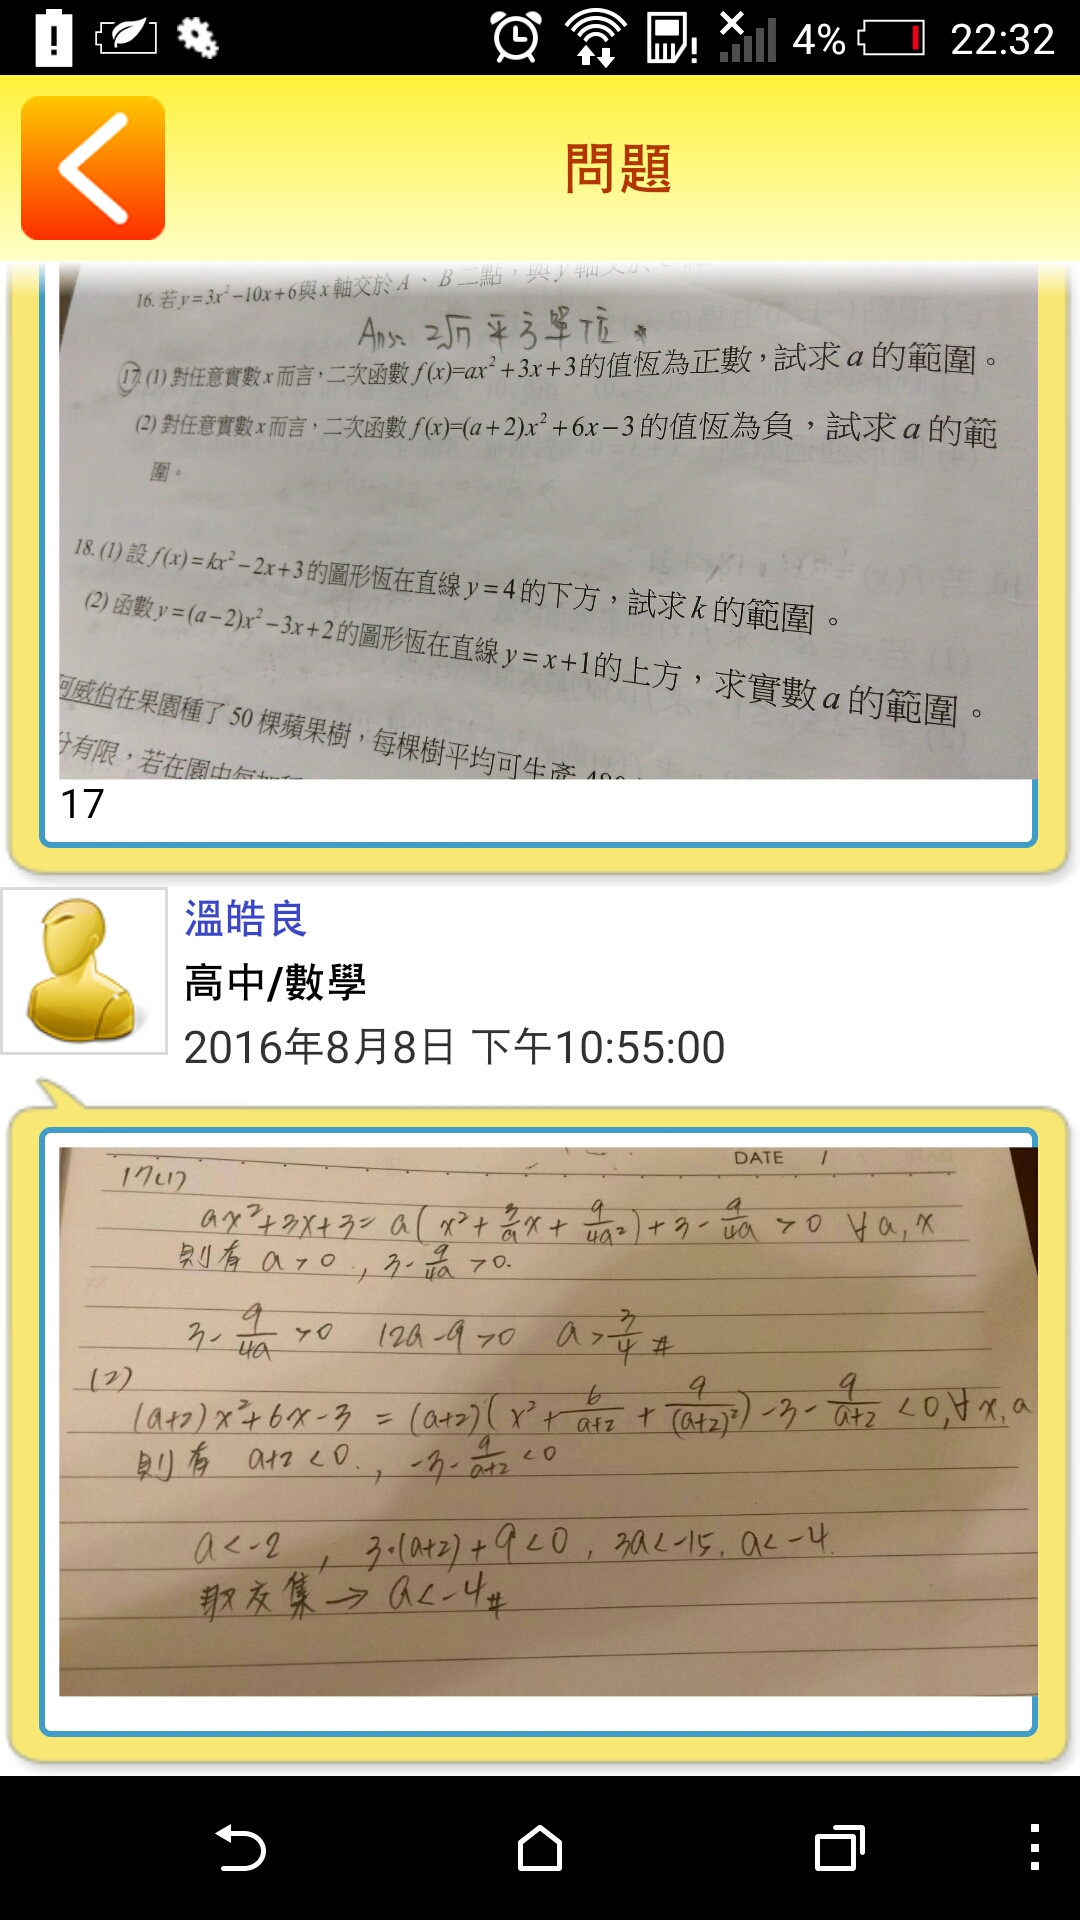 4% 22:32
問題
16. 若 y=3x²−10x+6與x軸交於A、B二點，與y軸交於
Ans: 2√7 平方單位
17. (1) 對任意實數x而言，二次函數 f(x)=ax²+3x+3的值恆為正數，試求a的範圍。
(2) 對任意實數x而言，二次函數 f(x)=(a+2)x²+6x−3的值恆為負，試求a的範
圍。
18. (1) 設 f(x)=kx²−2x+3的圖形恆在直線y=4的下方，試求k的範圍。
(2) 函數y=(a−2)x²−3x+2的圖形恆在直線y=x+1的上方，求實數a的範圍。
阿威伯在果園種了50棵蘋果樹，每棵樹平均可生產 480
分有限，若在園中每加種
17
溫皓良
高中/數學
2016年8月8日 下午10:55:00
DATE /
17(1)
ax²+3x+3= a(x²+3/a x+9/4a²)+3-9/4a >0 ∀a,x
則有 a>0., 3-9/4a >0.
3-9/4a >0 12a-9>0 a>3/4 #
(2)
(a+2)x²+6x-3 = (a+2)(x²+6/a+2+9/(a+2)²)-3-9/a+2 <0,∀x,a
則有 a+2<0., -3-9/a+2 <0
a<-2 , 3·(a+2)+9<0, 3a<-15, a<-4.
取交集→ a<-4 #